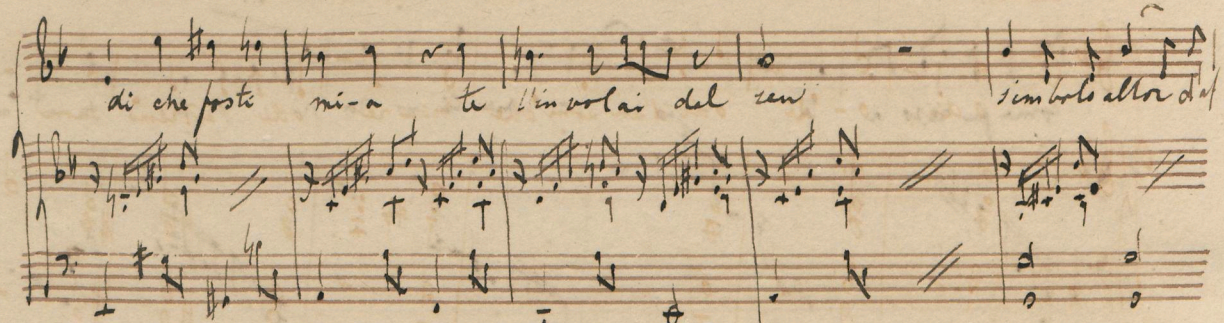 di che fosti mi-a te l'involai dal sen simbolo allor d'af